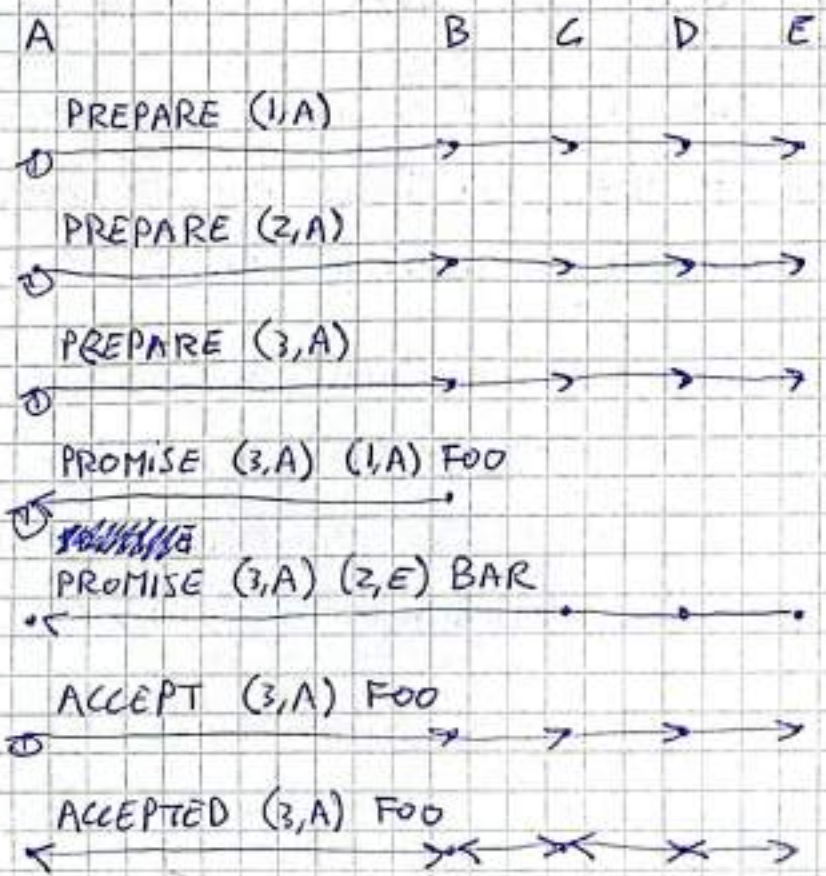 A B C D E
PREPARE (1,A)
PREPARE (2,A)
PREPARE (3,A)
PROMISE (3,A) (1,A) FOO
PROMISE (3,A) (2,E) BAR
ACCEPT (3,A) FOO
ACCEPTED (3,A) FOO